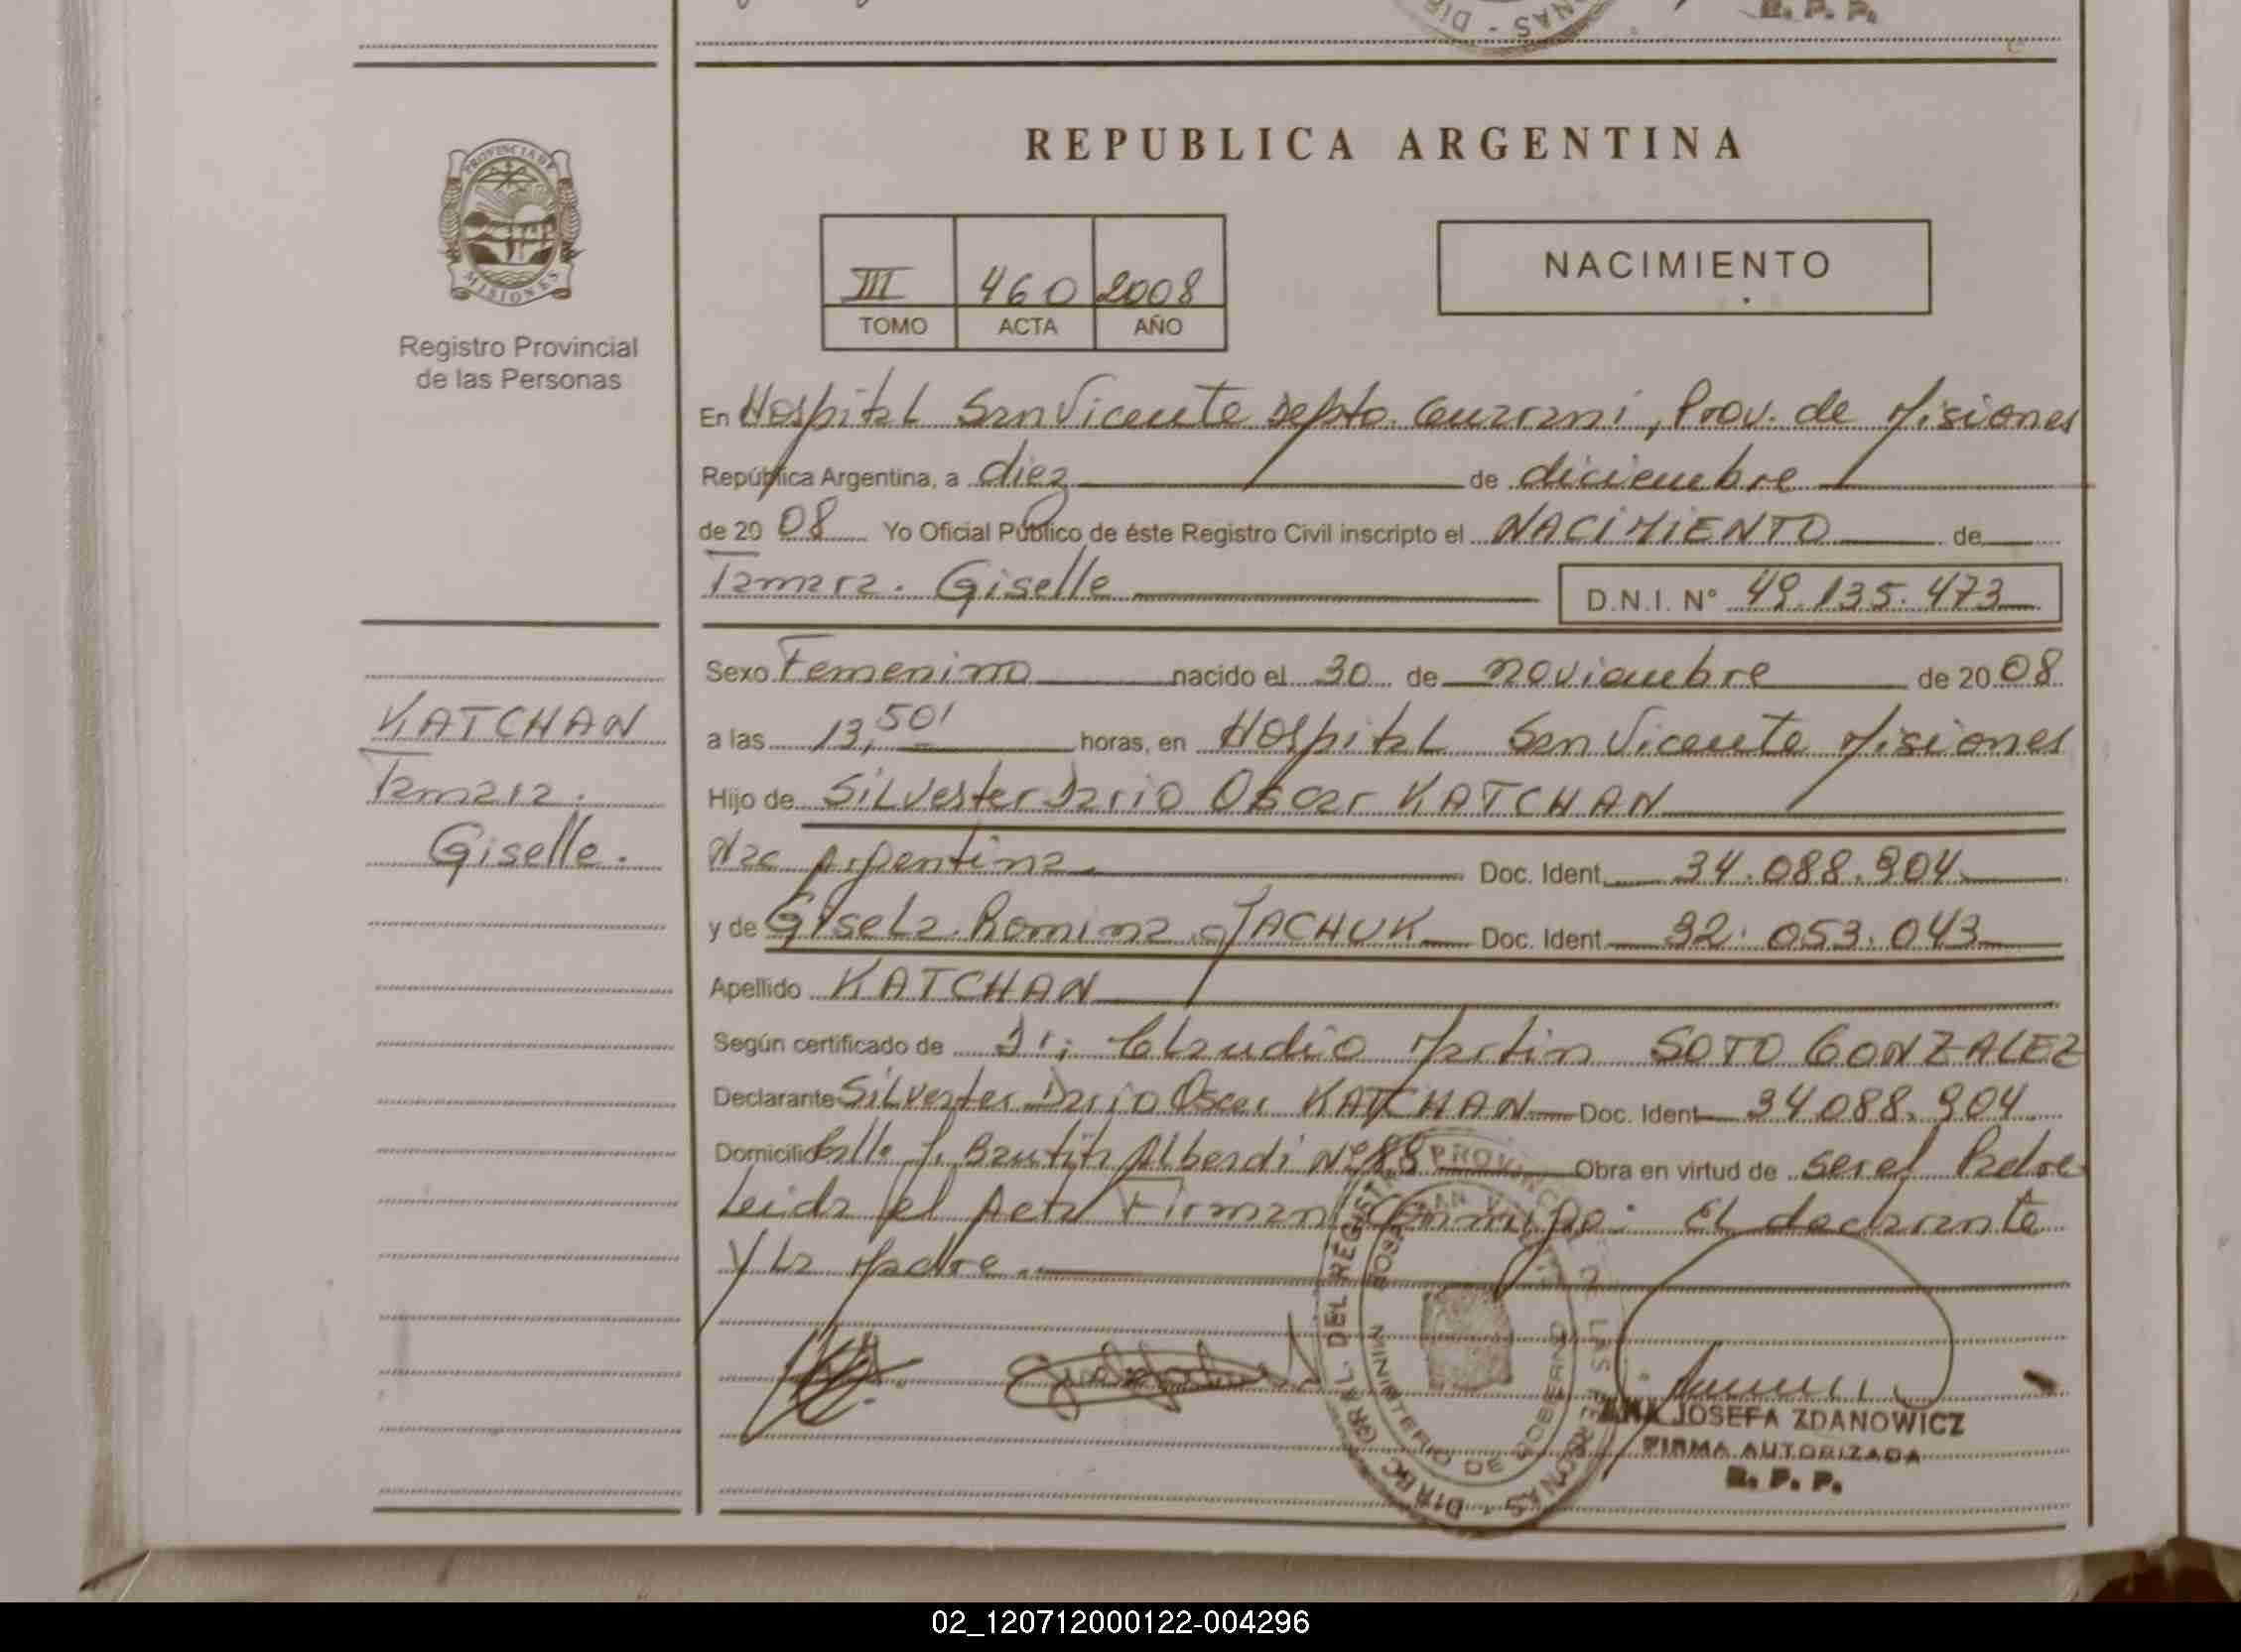 R. P. P.
REPUBLICA ARGENTINA
PROVINCIA DE
MISIONES
Registro Provincial
de las Personas
III 460 2008
TOMO ACTA AÑO
NACIMIENTO
En Hospital San Vicente Depto. Guarani, Prov. de Misiones
República Argentina, a diez de diciembre
de 2008 Yo Oficial Público de éste Registro Civil inscripto el NACIMIENTO de
Tamara. Giselle D.N.I. N° 49.135.473
Sexo Femenino nacido el 30 de noviembre de 2008
a las 13,50' horas, en Hospital San Vicente Misiones
Hijo de Silvester Dario Oscar KATCHAN
Nac Argentina Doc. Ident. 34.088.904
y de Gisela Romina JACHUK Doc. Ident. 32.053.043
Apellido KATCHAN
Según certificado de Dr; Claudio Martin SOTO GONZALEZ
Declarante Silvester Dario Oscar KATCHAN Doc. Ident. 34088.904
Domicilio Calle J. Bautista Alberdi N° 88 Obra en virtud de ser el Padre
Leida el Acta Firman Conmigo: El declarante
y La Madre.
KATCHAN
Tamara.
Giselle.
DIREC. GRAL. DEL REGISTRO PROVINCIAL DE LAS PERSONAS
MINISTERIO DE GOBIERNO
ANA JOSEFA ZDANOWICZ
FIRMA AUTORIZADA
R. P. P.
02_120712000122-004296